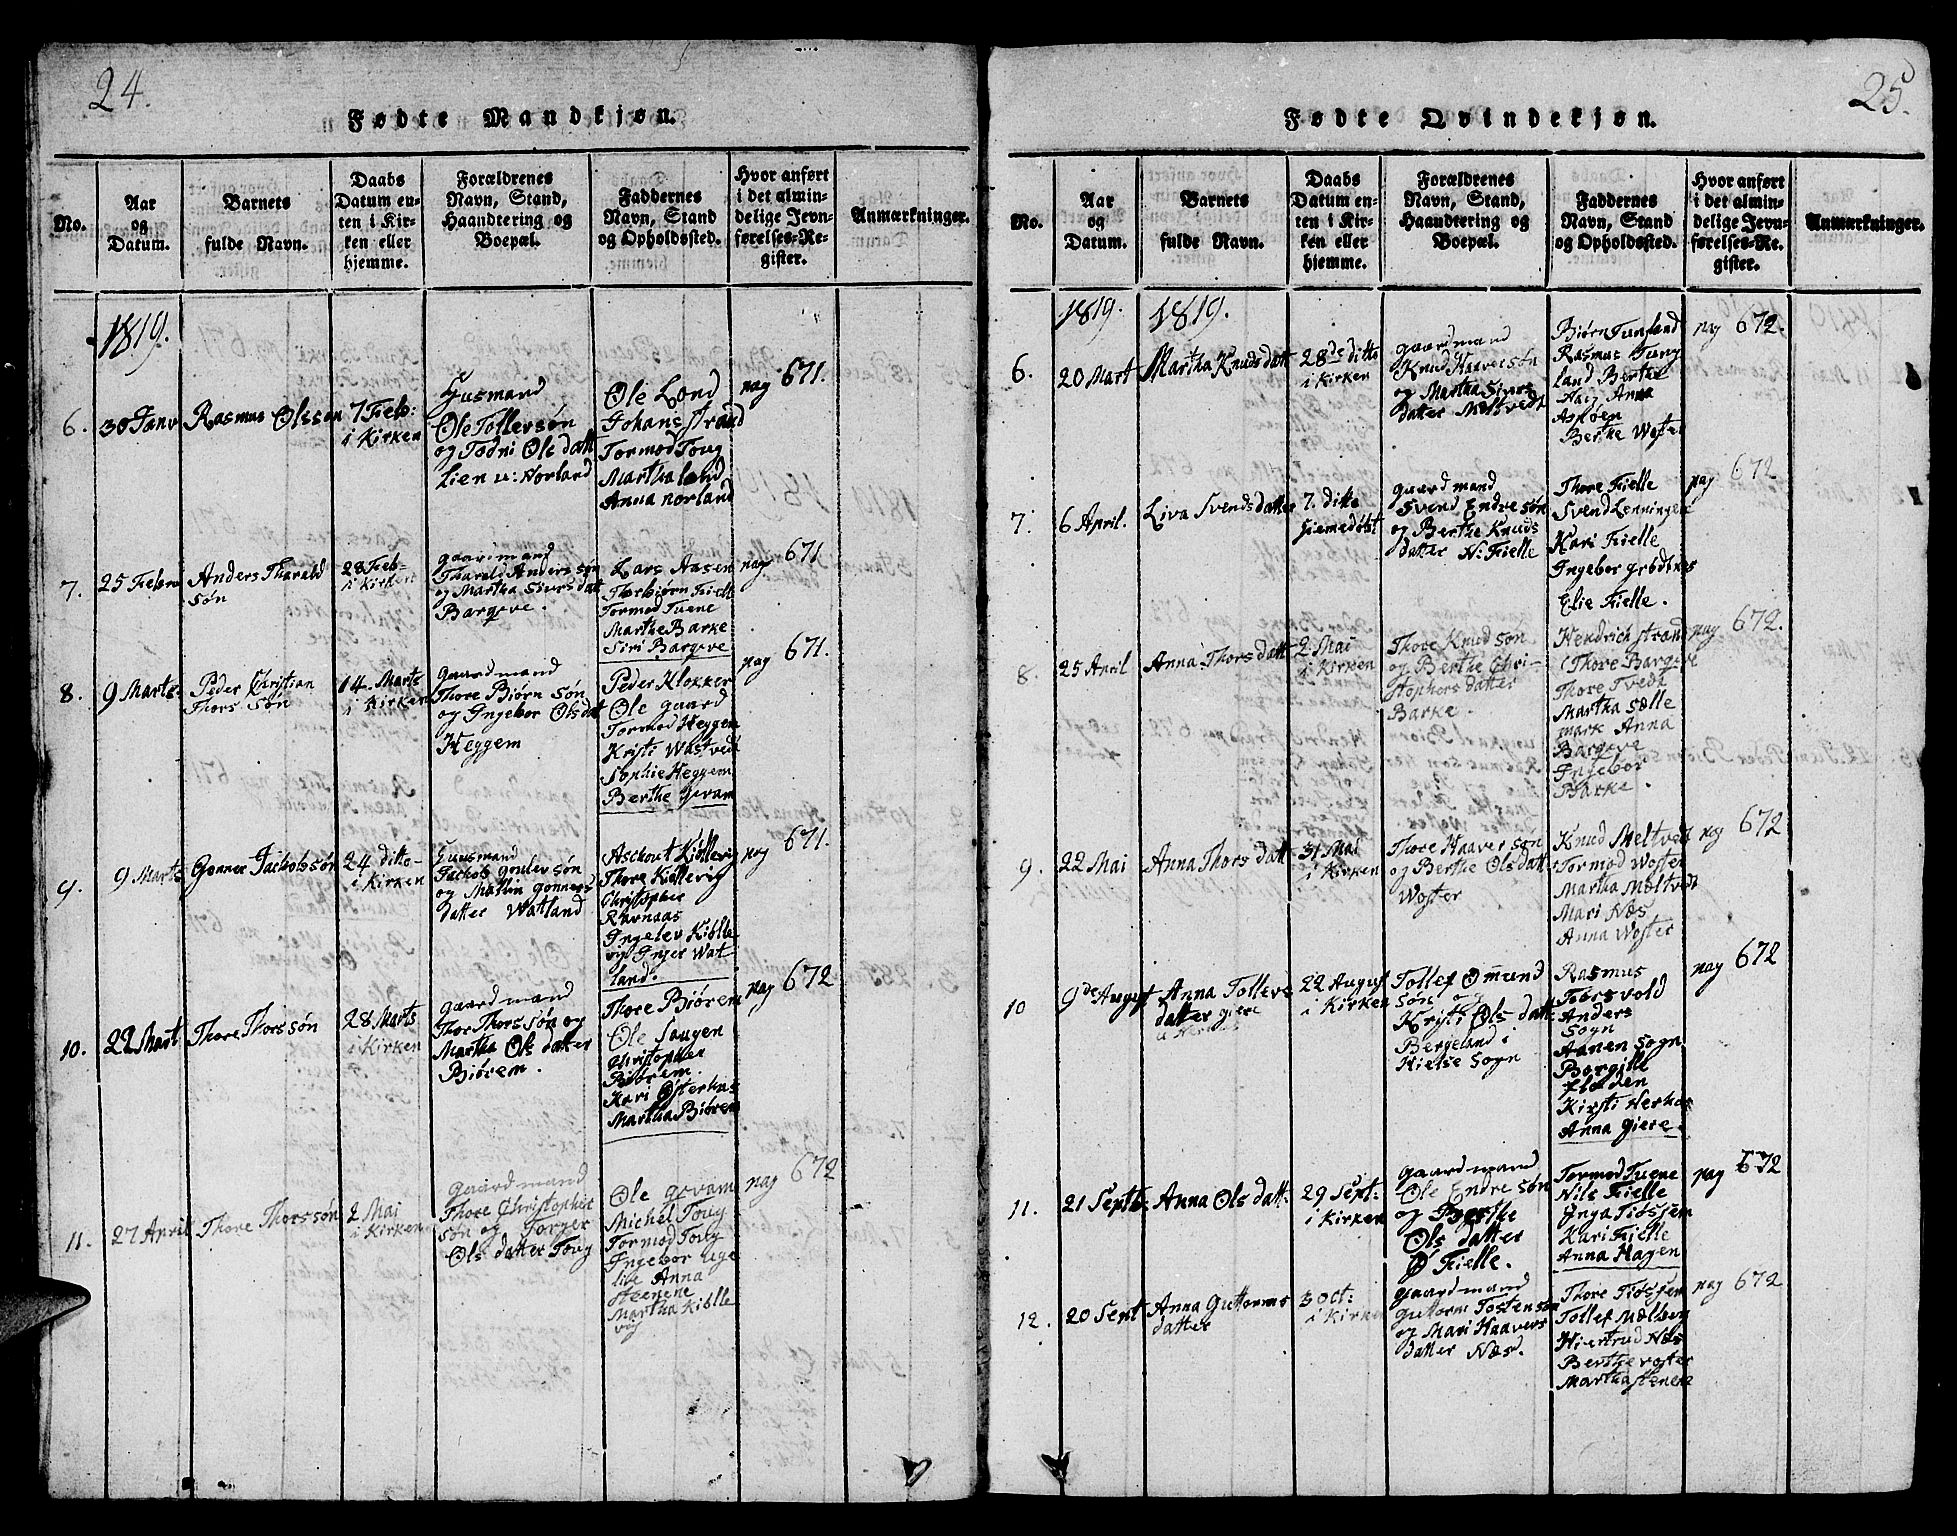 24.
Fødte Mandkjøn.
No.
Aar
og
Datum.
Barnets
fulde Navn.
Daabs
Datum en-
ten i Kir-
ken eller
hjemme.
Forældrenes
Navn, Stand,
Haandtering og
Boepæl.
Faddernes
Navn, Stand
og Opholdssted.
Hvor anført
i det almin-
delige Jevn-
førelses-Re-
gister.
Anmærkninger.
1819.
6.
30 Janv
Rasmus Olssøn
7 Feb:
i Kirken
Huusmand
Ole Tollevsøn
og Todni Ols datt
Lien u: Norland
Ole Lond
Johans strand
Tormod Toug
Martha lond
Anna norland
pag 671.
7.
25 Febru
Anders Tharald
søn
28 Feb-
i Kirken
gaardmand
Tharald Anders søn
og Martha Siurs datt
Bargeve.
Lars Aasen
Thorbiørn Fielle
Tormod Tuene
Marthe Barke
Siri Bargeve
pag 671
8.
9 Marts
Peder Christian
Thors Søn
14. Marts
i Kirken
Gaardmand
Thore Biørn Søn
og Ingebor Ols dat
Heggem
Peder Klokker
Ole gaard
Tormod Heggem
Kristi Wastved
Sophie Heggem
Berthe Gevam
pag 671.
9.
9 Marts
Gonner Jackobsøn
24 ditto-
i Kirken
Huusmand
Jackob goulev søn
og Mallin gonners
datter Watland
Asckout Kiøllevig
Thore Kiøllevig
Christopher
Ravnaas
Ingelev Kiølle
vig Inger Wat
land.
pag 671.
10.
22 Mart
Thore Thorssøn
28 Marts
i Kirken
gaardmand
Thor Thorssøn og
Martha Ols datter
Biørem.
Thore Biørem
Ole Saugen
Christopher
Biørem.
Kari Østerhus
Martha Biørem
pag 672
11.
27 Avril
Thore Thorssøn
2 Mai
i Kirken
gaardmand
Thore Christopher
søn og Torger
Ols datter Toug
Ole gevam
Michel Toug
Tormod Toug
Ingebor uge
lie Anna
steenene
Martha Kiølle
vig
pag 672
25.
Fødte Qvindekjøn.
No.
Aar
og
Datum.
Barnets
fulde Navn.
Daabs
Datum en-
ten i Kir-
ken eller
hjemme.
Forældrenes
Navn, Stand,
Haandtering og
Boepæl.
Faddernes
Navn, Stand
og Opholdssted.
Hvor anført
i det almin-
delige Jevn-
førelses-Re-
gister.
Anmærkninger.
1819. 1819.
6.
20 Mart
Martha Knudsdatt
28de ditto
i Kirken
gaardmand
Knud Haaver søn
og Martha Siurs
datter Meltvedt
Biørn Tungland
Rasmus Tung
land Berthe
Aag Anna
Asløen
Berthe Woster
pag 672.
7.
6 April.
Liva Svendsdatter
7. ditto
hiemedøbt
gaardmand
Svend Endresøn
og Berthe Knuds
datter N: Fielle
Thore Fielle
Svend Lenningen
Kari Fielle
Ingebor grødtnes
Elie Fielle.
pag 672
8.
25 April
Anna Thorsdatt
2 Mai
i Kirken
Thore Knudsøn
og Berthe Chri-
stophers datter
Barke.
Hendrich strand
Thore Bargeve
Thore Tveda
Martha Sælle
mark Anna
Bargeve
Ingebor
Barke.
pag 672.
9.
22 Mai
Anna Thors datt
31 Mai
i Kirken
Thore Haaver søn
og Berthe Olsdatt
Woster
Knud Meltvedt
Tormod Woster
Martha Mæltvedt
Mari Næs
Anna Woster
pag 672
10
9de August
Anna Tollevs
datter giere
22 August
i Kirken
Tollef Omund
søn og
Kristi Ols datt
Bergeland i
Hielse Sogn
Rasmus
Forsvold
Anders
Sogn
Aanen Sogn
Borgille
floden
Kirsti Herhus
Anna Giere
pag 672
11.
21 Septb.
Anna Ols datt:
29 Sept:
i Kirken
gaardmand
Ole Endre søn
og Berthe
Ols datter
Ø Fielle.
Tormod Tuene
Nils Fielle
Inga Tiøssem
Kari Fielle
Anna Hagen
pag 672
12.
20 Sept
Anna Guttorms
datter
3 oct:
i Kirken
gaardmand
Guttorm Tostensøn
og Mari Haavers
datter Næs.
Thore Tiøssem
Tollef Mælberg
Hiertrud Næs
Berthe voster
Martha stenene
pag 672